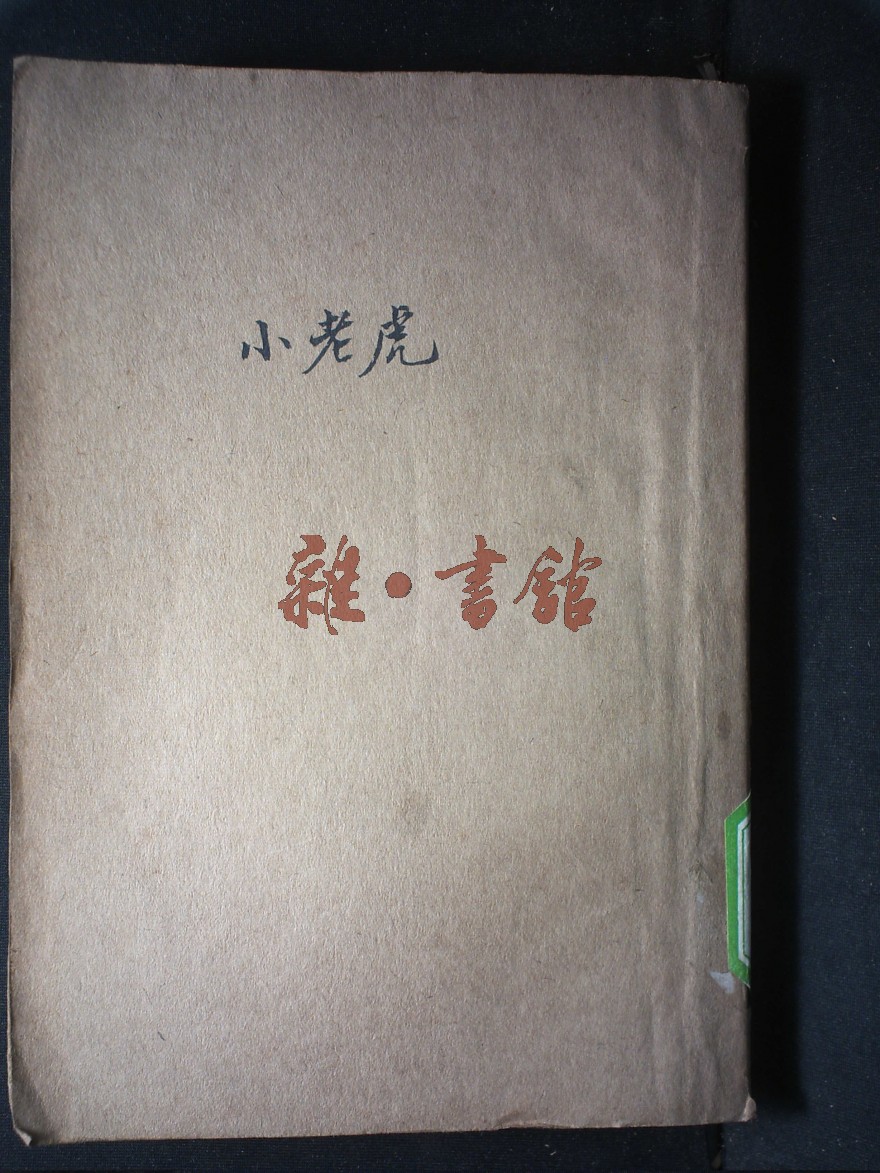 小老虎
雜·書館